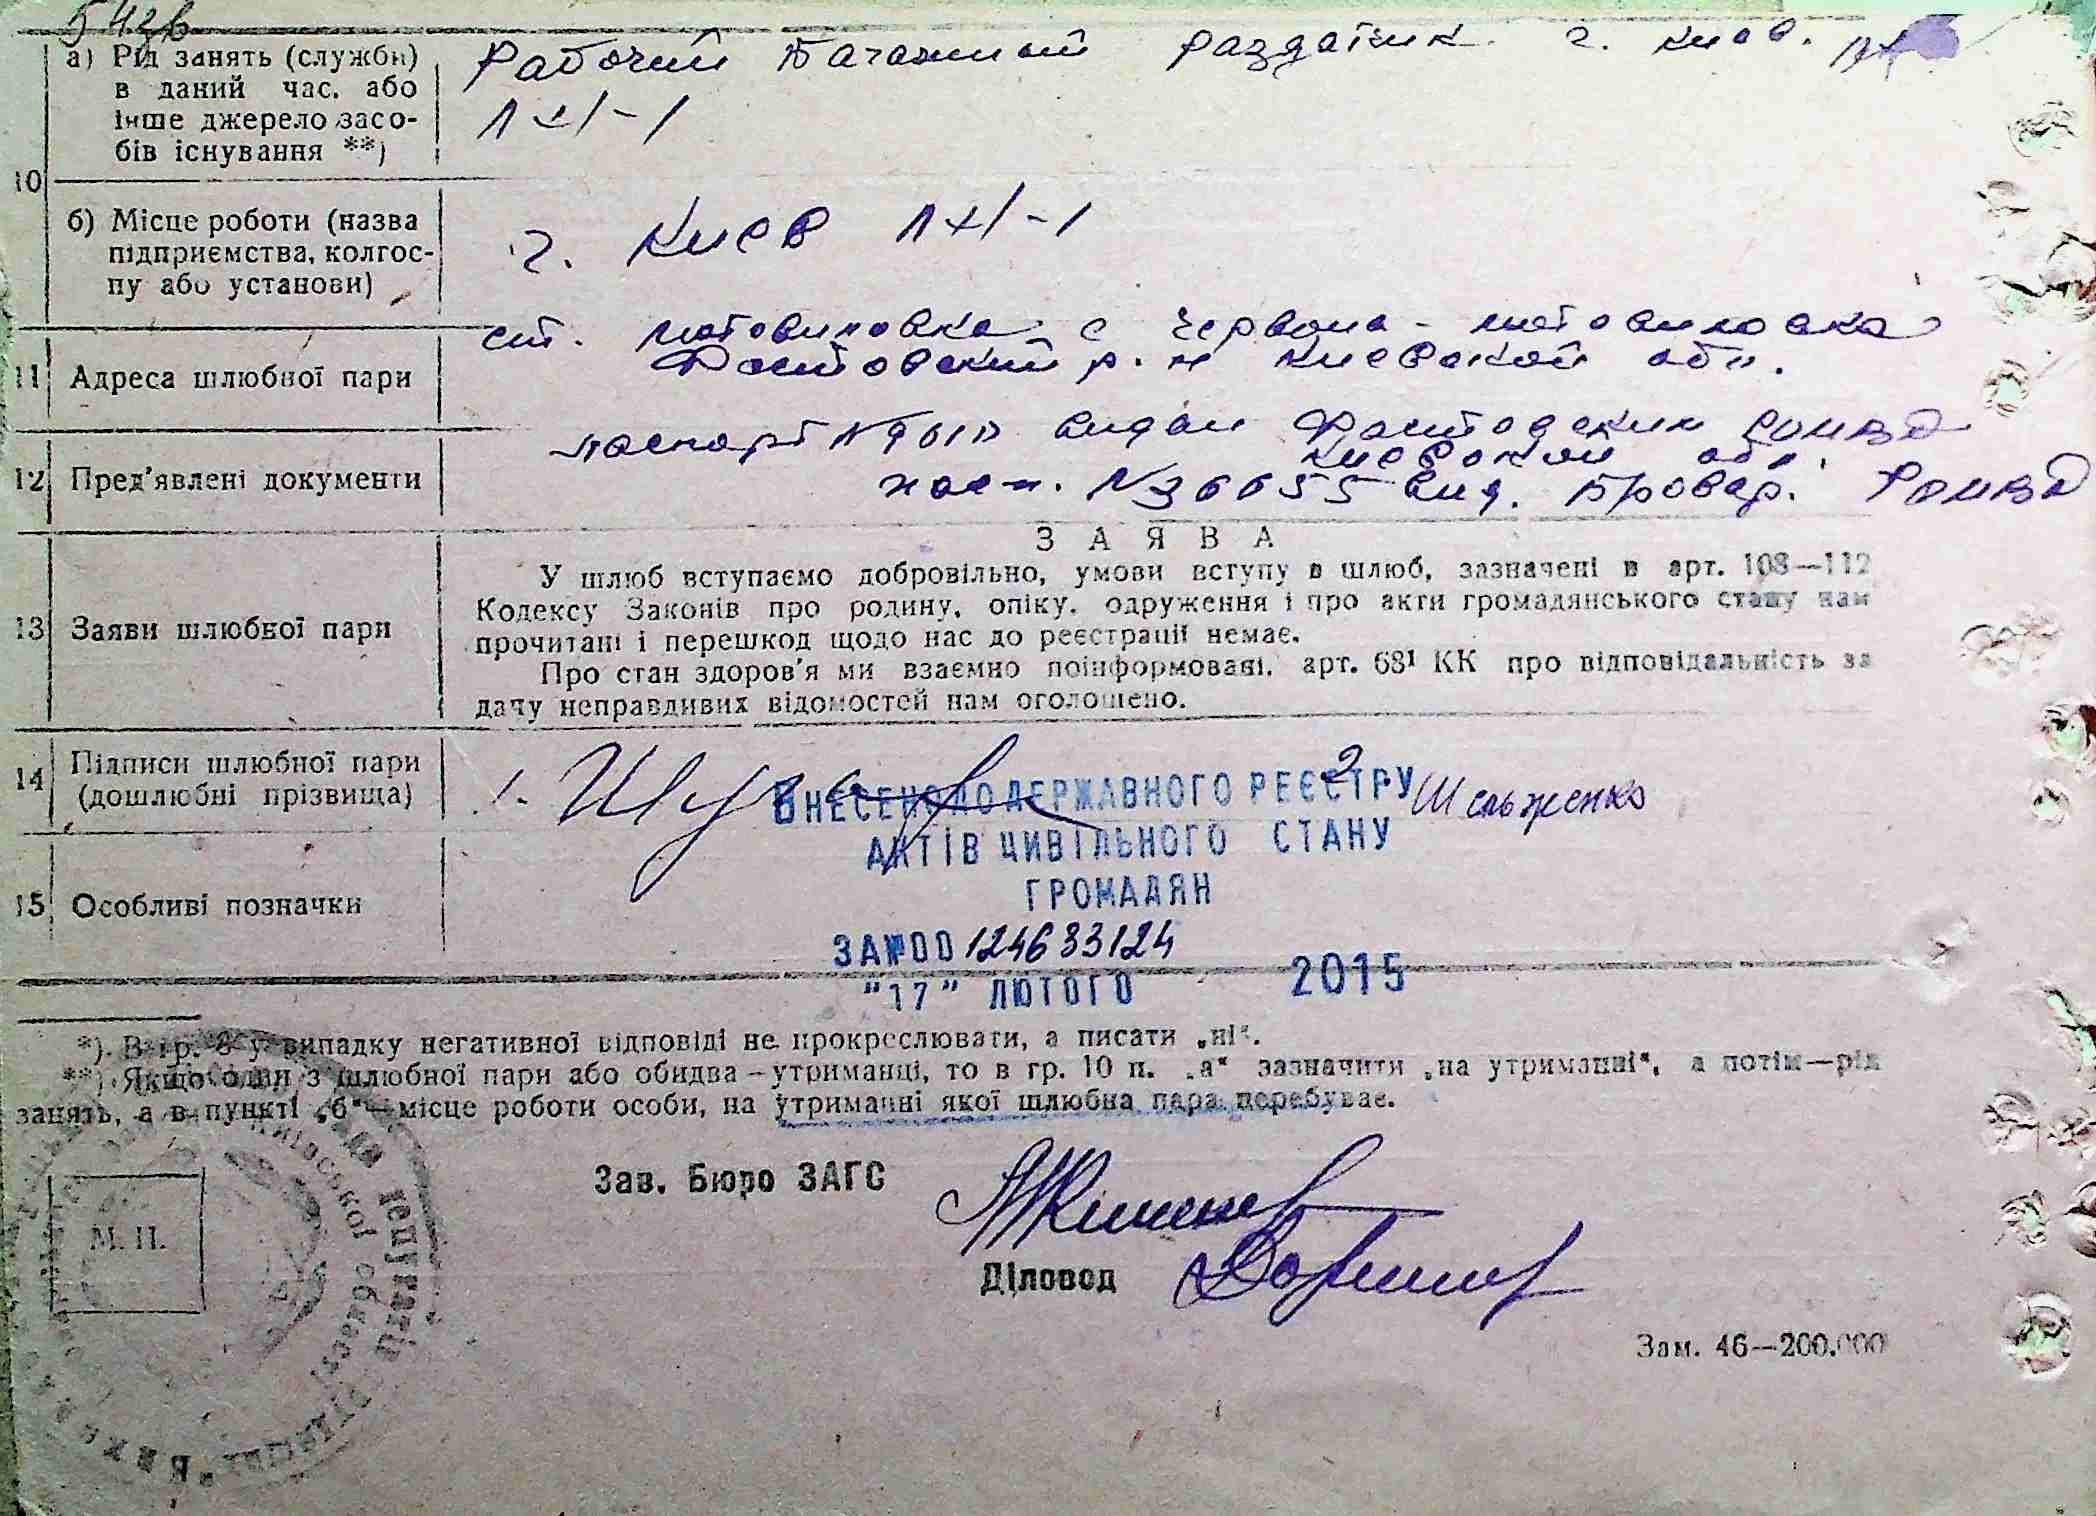 а) Рід занять (служби)
в даний час. або
інше джерело засо-
бів існування **)
Рабочий Багажный раздатчик г. Киев.
10
б) Місце роботи (назва
підприємства, колгос-
пу або установи)
г. Киев
11 Адреса шлюбної пари
ст. мотовиловка с Червона-мотовиловка
Фастовский р-н Киевской обл.
12 Пред'явлені документи
паспорт видан Фастовским
Киевской обл.
пасп. N36655 выд. Бровар.
ЗАЯВА
13 Заяви шлюбної пари
У шлюб вступаємо добровільно, умови вступу в шлюб, зазначені в арт. 108—112
Кодексу Законів про родину, опіку, одруження і про акти громадянського стану нам
прочитані і перешкод щодо нас до реєстрації немає.
Про стан здоров'я ми взаємно поінформовані. арт. 68¹ КК про відповідальність за
дачу неправдивих відомостей нам оголошено.
14 Підписи шлюбної пари
(дошлюбні прізвища)
1.
2.
ВНЕСЕНО ДО ДЕРЖАВНОГО РЕЄСТРУ
АКТІВ ЦИВІЛЬНОГО СТАНУ
ГРОМАДЯН
15 Особливі позначки
ЗА №00124633124
"17" ЛЮТОГО 2015
*) В гр. 8 у випадку негативної відповіді не прокреслювати, а писати „ні“.
**) Якщо один з шлюбної пари або обидва—утриманці, то в гр. 10 п. „а“ зазначити „на утриманні“, а потім—рід
занять, а в пункті „б“—місце роботи особи, на утриманні якої шлюбна пара перебуває.
Зав. Бюро ЗАГС
М. П.
Діловод
Зам. 46—200.000